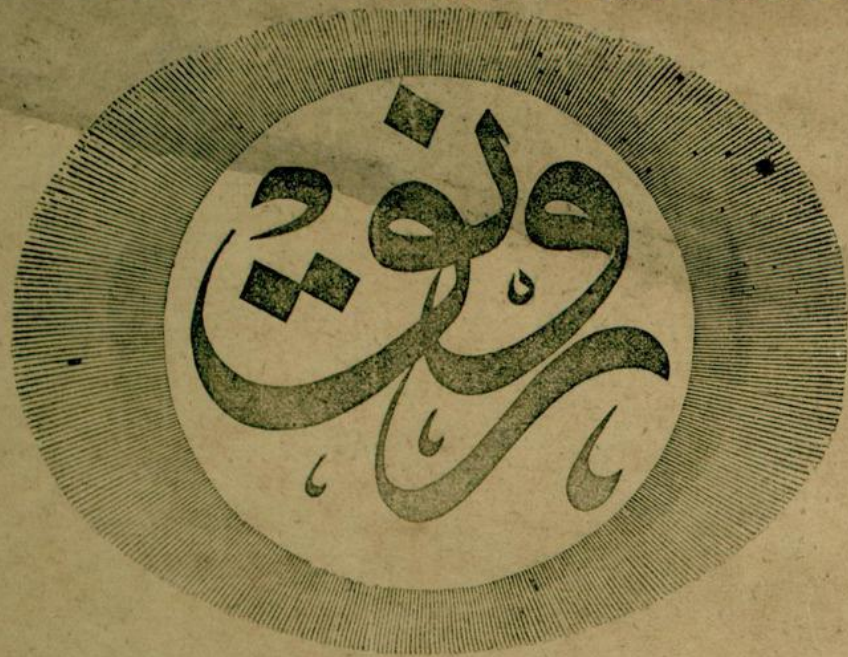 رونق